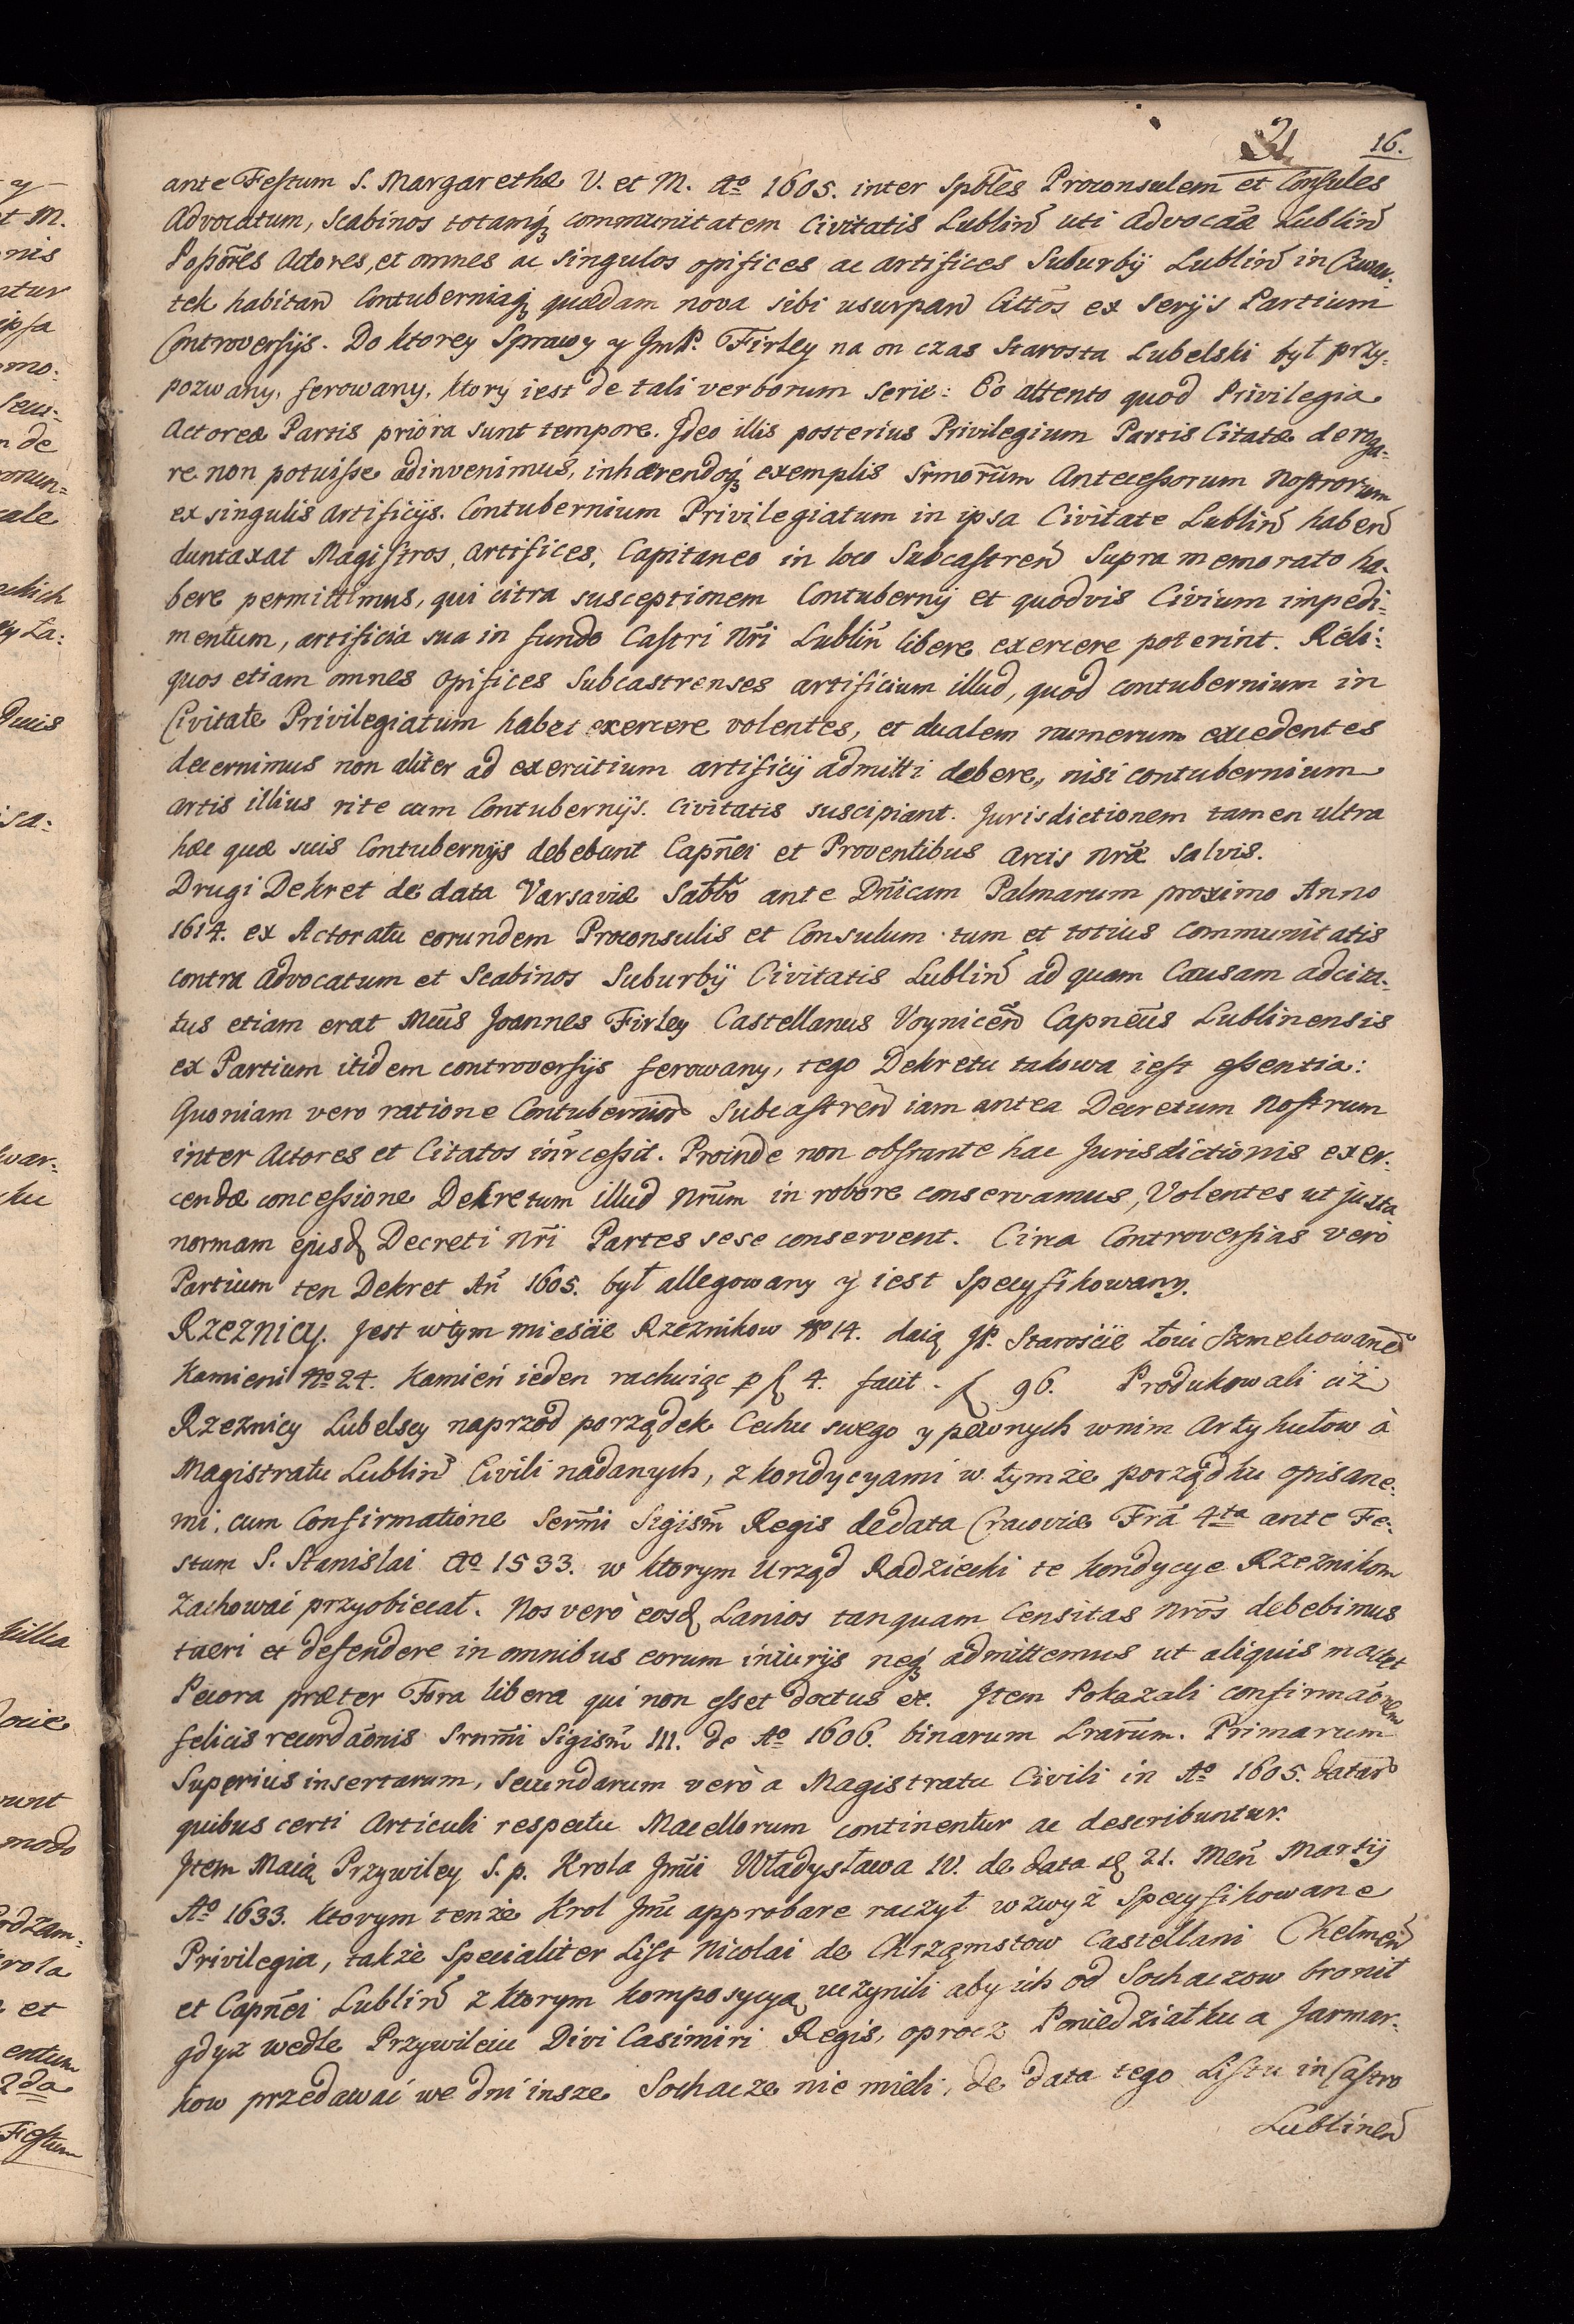 21 16.
ante Festum S. Margarethæ V. et M. Aº 1605. inter Spbles Proconsulem et Consules
Advocatum, Scabinos totamq́ʒ communitatem Civitatis Lublin̄ uti Advocãæ Lublin̄
Popõres Actores, et omnes ac singulos opifices ac artifices Suburbÿ Lublin̄ in Czwar:
tek habitan̄ Contuberniaq́ʒ quædam nova sibi usurpan̄ Cittõs ex Serÿs Partium
Controversÿs. Do ktorey Sprawy y JmP. Firley na on czas Starosta Lubelski był przy:
pozwany, ferowany, ktory iest de tali verborum serie: Eo attento quod Privilegia
Actoreæ Partis priora sunt tempore. Ideo illis posterius Privilegium Partis Citatæ deroga:
re non potuisse adinvenimus, inhærendoq́ʒ exemplis Srmorum Antecessorum Nostrorum
ex singulis artificÿs. Contubernium Privilegiatum in ipsa Civitate Lublin̄ haben̄
duntaxat Magistros, artifices, Capitaneo in loco Subcastren̄ Supra memorato ha:
bere permittimus, qui citra susceptionem Contubernÿ et quodvis Civium impedi:
mentum, artificia sua in fundo Castri Nr̃i Lublin̄ libere exercere poterint. Reli:
quos etiam omnes Opifices Subcastrenses artificium illud, quod contubernium in
Civitate Privilegiatum habet exercere volentes, et dualem numerum excedentes
decernimus non aliter ad exercitium artificÿ admitti debere, nisi contubernium
artis illius rite cum Contubernÿs. Civitatis suscipiant. Jurisdictionem tamen ultra
hæc quæ suis Contubernÿs debebunt Capñei et Proventibus Arcis Nræ salvis.
Drugi Dekret de data Varsaviæ Sabbo ante Dñicam Palmarum proximo Anno
1614. ex Actoratu eorundem Proconsulis et Consulum tum et totius Communitatis
contra Advocatum et Scabinos Suburbÿ Civitatis Lublin̄ ad quam Causam adcita:
tus etiam erat Mcus Joannes Firley Castellanus Voynicen̄ Capneus Lublinensis
ex Partium itidem controversÿs ferowany, tego Dekretu takowa iest essentia:
Quoniam vero ratione Contubernior̄ Subcastren̄ iam antea Decretum Nostrum
inter Actores et Citatos invcessit. Proinde non obstante hac Jurisdictionis exer:
cendæ concessione Dekretum illud Nrum in robore conservamus, Volentes ut juxta
normam ejusd Decreti Nr̃i Partes sese conservent. Circa Controversias verò
Partium ten Dekret An̄ 1605. był allegowany y iest specyfikowany.
Rzeznicy. Jest w tym mieście Rzeznikow Nº 14. daią JP. Starościie Łoiu Szmelcowane
Kamieni Nº 24. Kamień ieden rachuiąc p f 4. facit - f 96. Produkowali ciż
Rzeznicy Lubelscy naprzod porządek Cechu swego y pewnych w nim Artykułow à
Magistratu Lublin̄ Civili nadanych, z kondycyami w tymże porządku opisane:
mi, cum Confirmatione Serm̃i Sigism̃ Regis de data Cracoviæ Fra 4ta ante Fe:
stum S. Stanislai Aº 1533. w ktorym Urząd Radziecki te kondycye Rzeznikom
zachowaí przyobiecał. Nos verò eosd Lanios tanquam Censitas Nr̃os debebimus
tueri et defendere in omnibus eorum iniurÿs neq́ʒ admittemus ut aliquis mactet
Pecora præter Fora libera qui non esset doctus etc. Item Pokazali confirmaõnem
felicis recordãonis Srnmi Sigism̃ III. de Aº 1606. binarum Lrarum. Primarum
Superius insertarum, Secundarum verò a Magistratu Civili in Aº 1605. datar̄
quibus certi Articuli respectu Macellorum continentur ac describuntur.
Item Maią Przywiley S. p. Krola Jmci Władysława IV. de data d 21. Men̄ Martÿ
Aº 1633. ktorym tenże Krol Jmć approbare raczył wzwyż specyfikowane
Privilegia, także specialiter List Nicolai de Chrząmstow Castellani Chelmen̄
et Capñei Lublin̄ z ktorym komposycyą uczynili aby ich od Sochaczow bronił
gdyż wedle Przywileiu Divi Casimiri Regis, oprocz Poniedziałku a Jarmar:
kow przedawać we dni insze Sochacze nie mieli, de data tego Listu in Castro
Lublinen̄